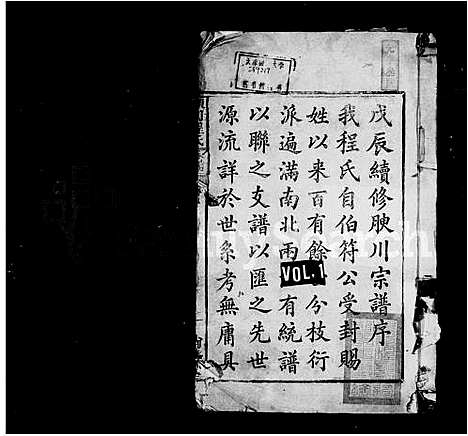 戊辰續修腴川宗譜序
我程氏自伯符公受封賜
姓以來百有餘 分枝衍
派遍滿南北兩 有統譜
以聯之支譜以匯之先世
源流詳於世系考無庸具
VOL.1